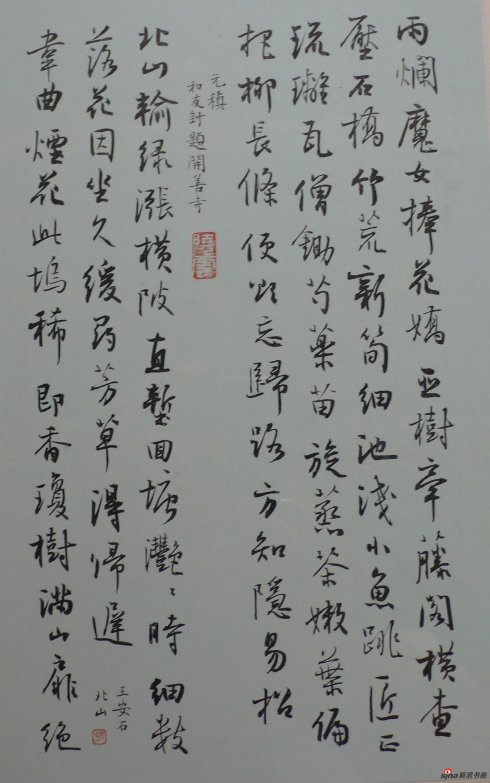 雨爛魔女捧花嬌亞樹牽藤閣橫查
壓石橋竹荒新筍細池淺小魚跳匠正
琉璃瓦僧鋤芍藥苗旋蒸茶嫩葉偏
把柳長條便欲忘歸路方知隱易招
元稹
和友封題開善寺
北山輸綠漲橫陂直塹囬塘灩〻時細數
落花因坐久緩尋芳草得帰遲
韋曲煙花此塢稀即香瓊樹滿山扉絕
王安石
北山
sina新浪书画